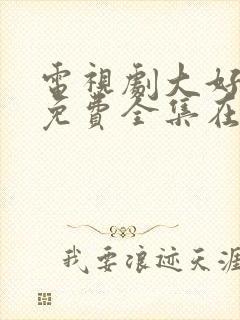 電視劇大好
免費全集在
我要浪迹天涯